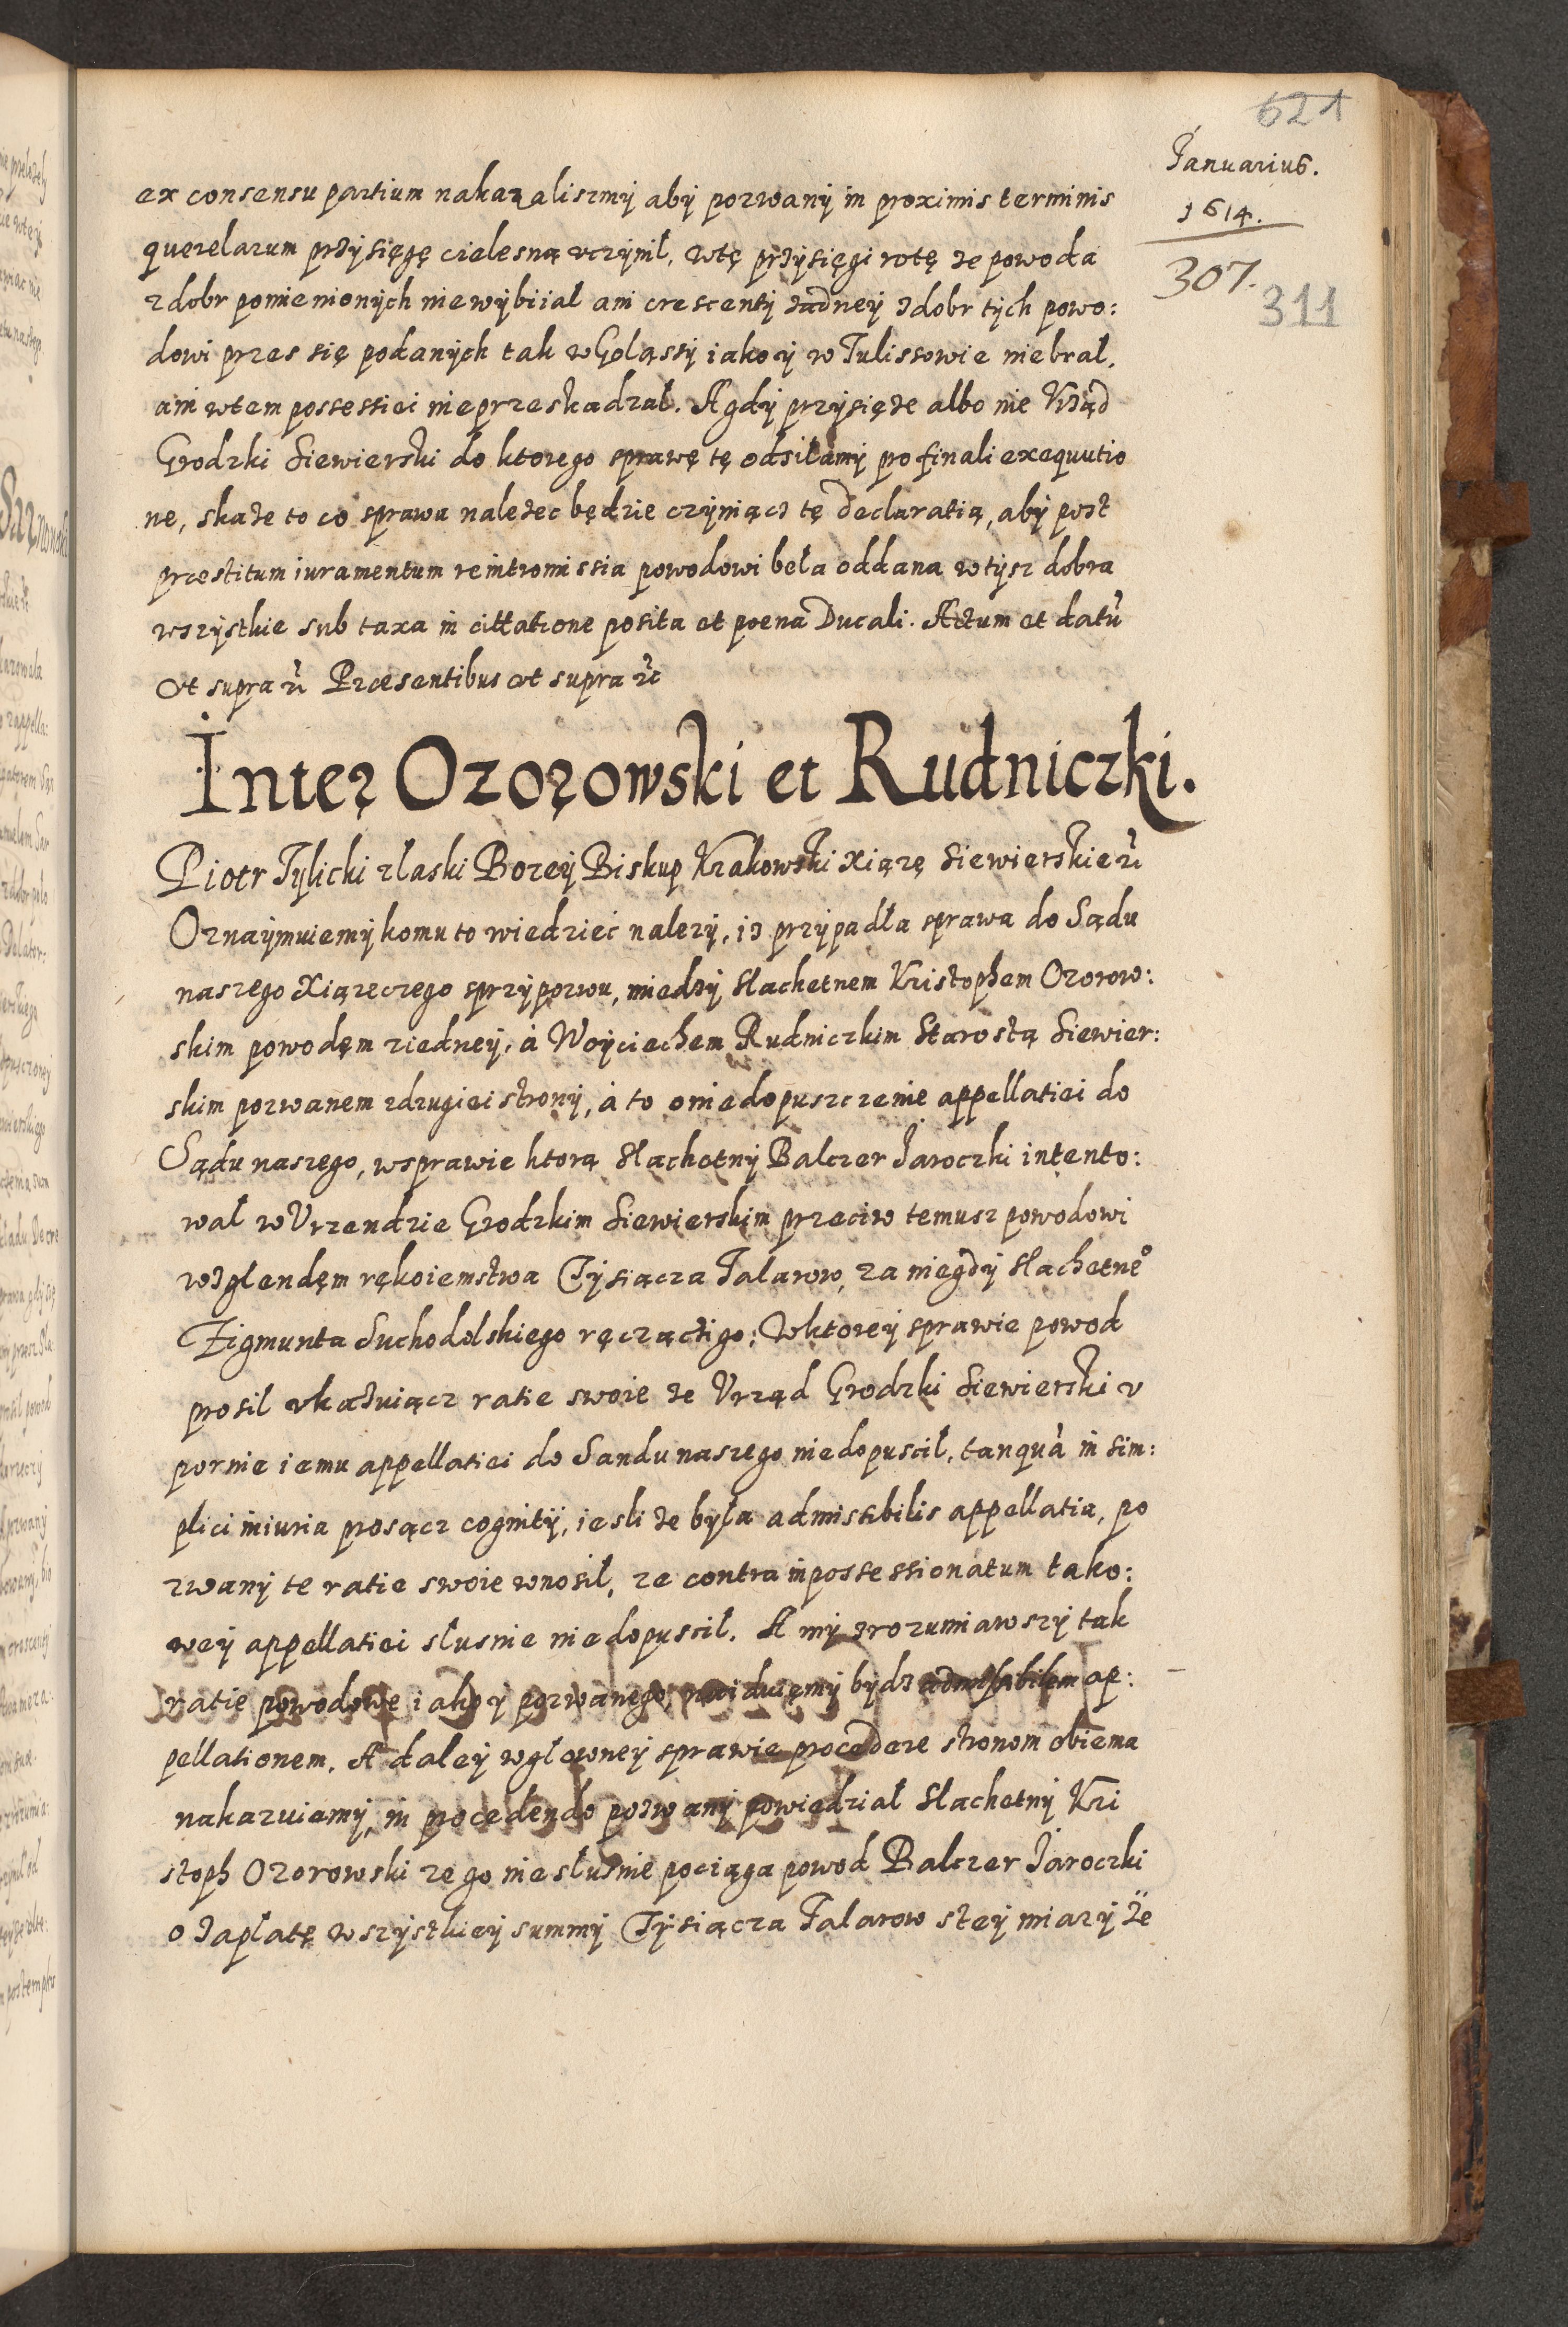 621
Januarius.
1614.
307.
311
ex consensu partium nakazaliszmÿ abÿ pozwanÿ in proximis terminis
querelarum przÿsięgę cielesną uczÿnił, wtę przÿsięgi rotę że powoda
z dobr pomienionÿch niewÿbiiał ani crescentÿ żadneÿ z dobr tÿch powo:
dowi przes się podanÿch tak w Goląssÿ iako ÿ w Tulissowie niebrał,
ani wtem possessiei nieprzeskadzał. A gdÿ przÿsięże albo nie Vrząd
Grodzki Siewierski do ktorego sprawę tę odsiłamÿ pro finali exequutio
ne, skaże to co sprawa należec będzie czÿniącz tę declaratią, abÿ post
præstitum iuramentum reintromissia powodowi beła oddana w tÿsz dobra
wszÿstkie sub taxa in cittatione posita et poena Ducali. Actum et datu
ut supra etc Præsentibus ut supra etc
Inter Ozorowski et Rudniczki.
Piotr Tÿlicki z laski Bozeÿ Biskup Krakowski Xiązę Siewierskie etc
Oznaÿmuiemÿ komu to wiedzieć nalezÿ, iż przÿpadła sprawa do Sądu
naszego Xiązeczego sprzÿpozwu, miedzÿ Slachetnem Kristophem Ozorow:
skim powodęm ziedneÿ, á Woÿciechem Rudniczkim Starostą Siewier:
skim pozwanem zdrugiei stronÿ, á to o niedopuszczenie appellatiei do
Sądu naszego, wsprawie ktorą Slachetnÿ Balczer Jaroczki intento:
wał w Vrzendzie Grodzkim Siewierskim przeciw temusz powodowi
wzglendęm rękoiemstwa Tÿsiącza Talarow, za niegdÿ Slachetne°
Zigmunta Suchodolskiego ręcząctigo: Wktoreÿ sprawie powod
prosil ukazuiącz ratie swoie że Vrząd Grodzki Siewierski v
pornie iemu appellatiei do Sandu naszego niedopuscił, tanquà in sim:
plici iniuria prosącz cognitÿ, iesli że bÿła admissibilis appellatia, po
zwanÿ te ratie swoie wnosił, ze contra inpossessionatum tako:
weÿ appellatiei słusnie niedopuscił. A mÿ zrozumiawszÿ tak
ratie powodowe iako ÿ pozwanego, bÿdz admissibilem ap:
pellationem. A daleÿ wgłowneÿ sprawie procedere stronom obiema
nakazuiemÿ, in procedendo pozwanÿ powiedział Slachetnÿ Kri
stoph Ozorowski ze go niesłusnie pociąga powod Balczer Jaroczki
o zapłatę wszÿstkieÿ summÿ Tÿsiącza Talarow steÿ miarÿ że